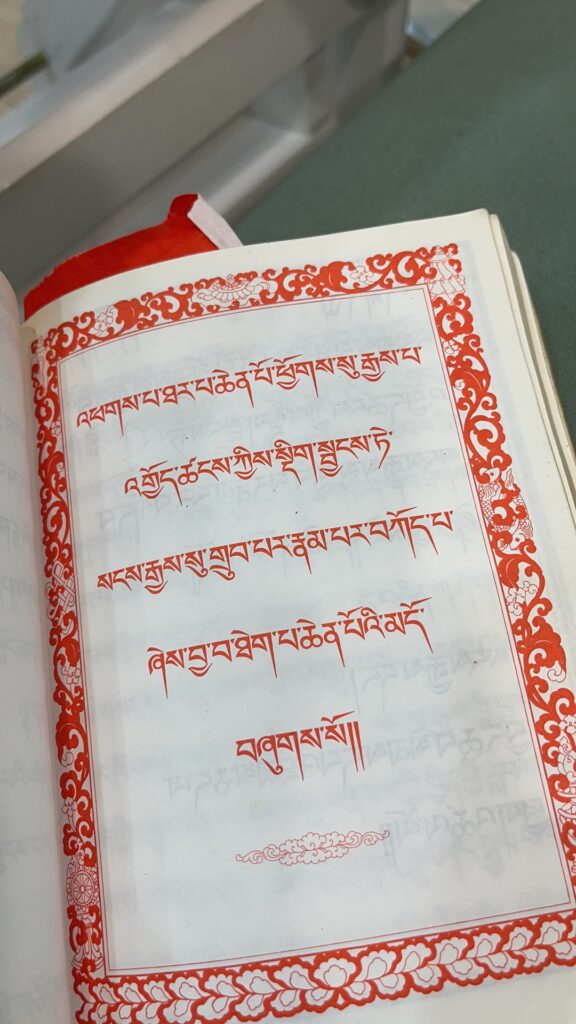 འཕགས་པ་ཐར་པ་ཆེན་པོ་ཕྱོགས་སུ་རྒྱས་པ་
འགྱོད་ཚངས་ཀྱིས་སྡིག་སྦྱངས་ཏེ་
སངས་རྒྱས་སུ་གྲུབ་པར་རྣམ་པར་བཀོད་པ་
ཞེས་བྱ་བ་ཐེག་པ་ཆེན་པོའི་མདོ་
བཞུགས་སོ།།